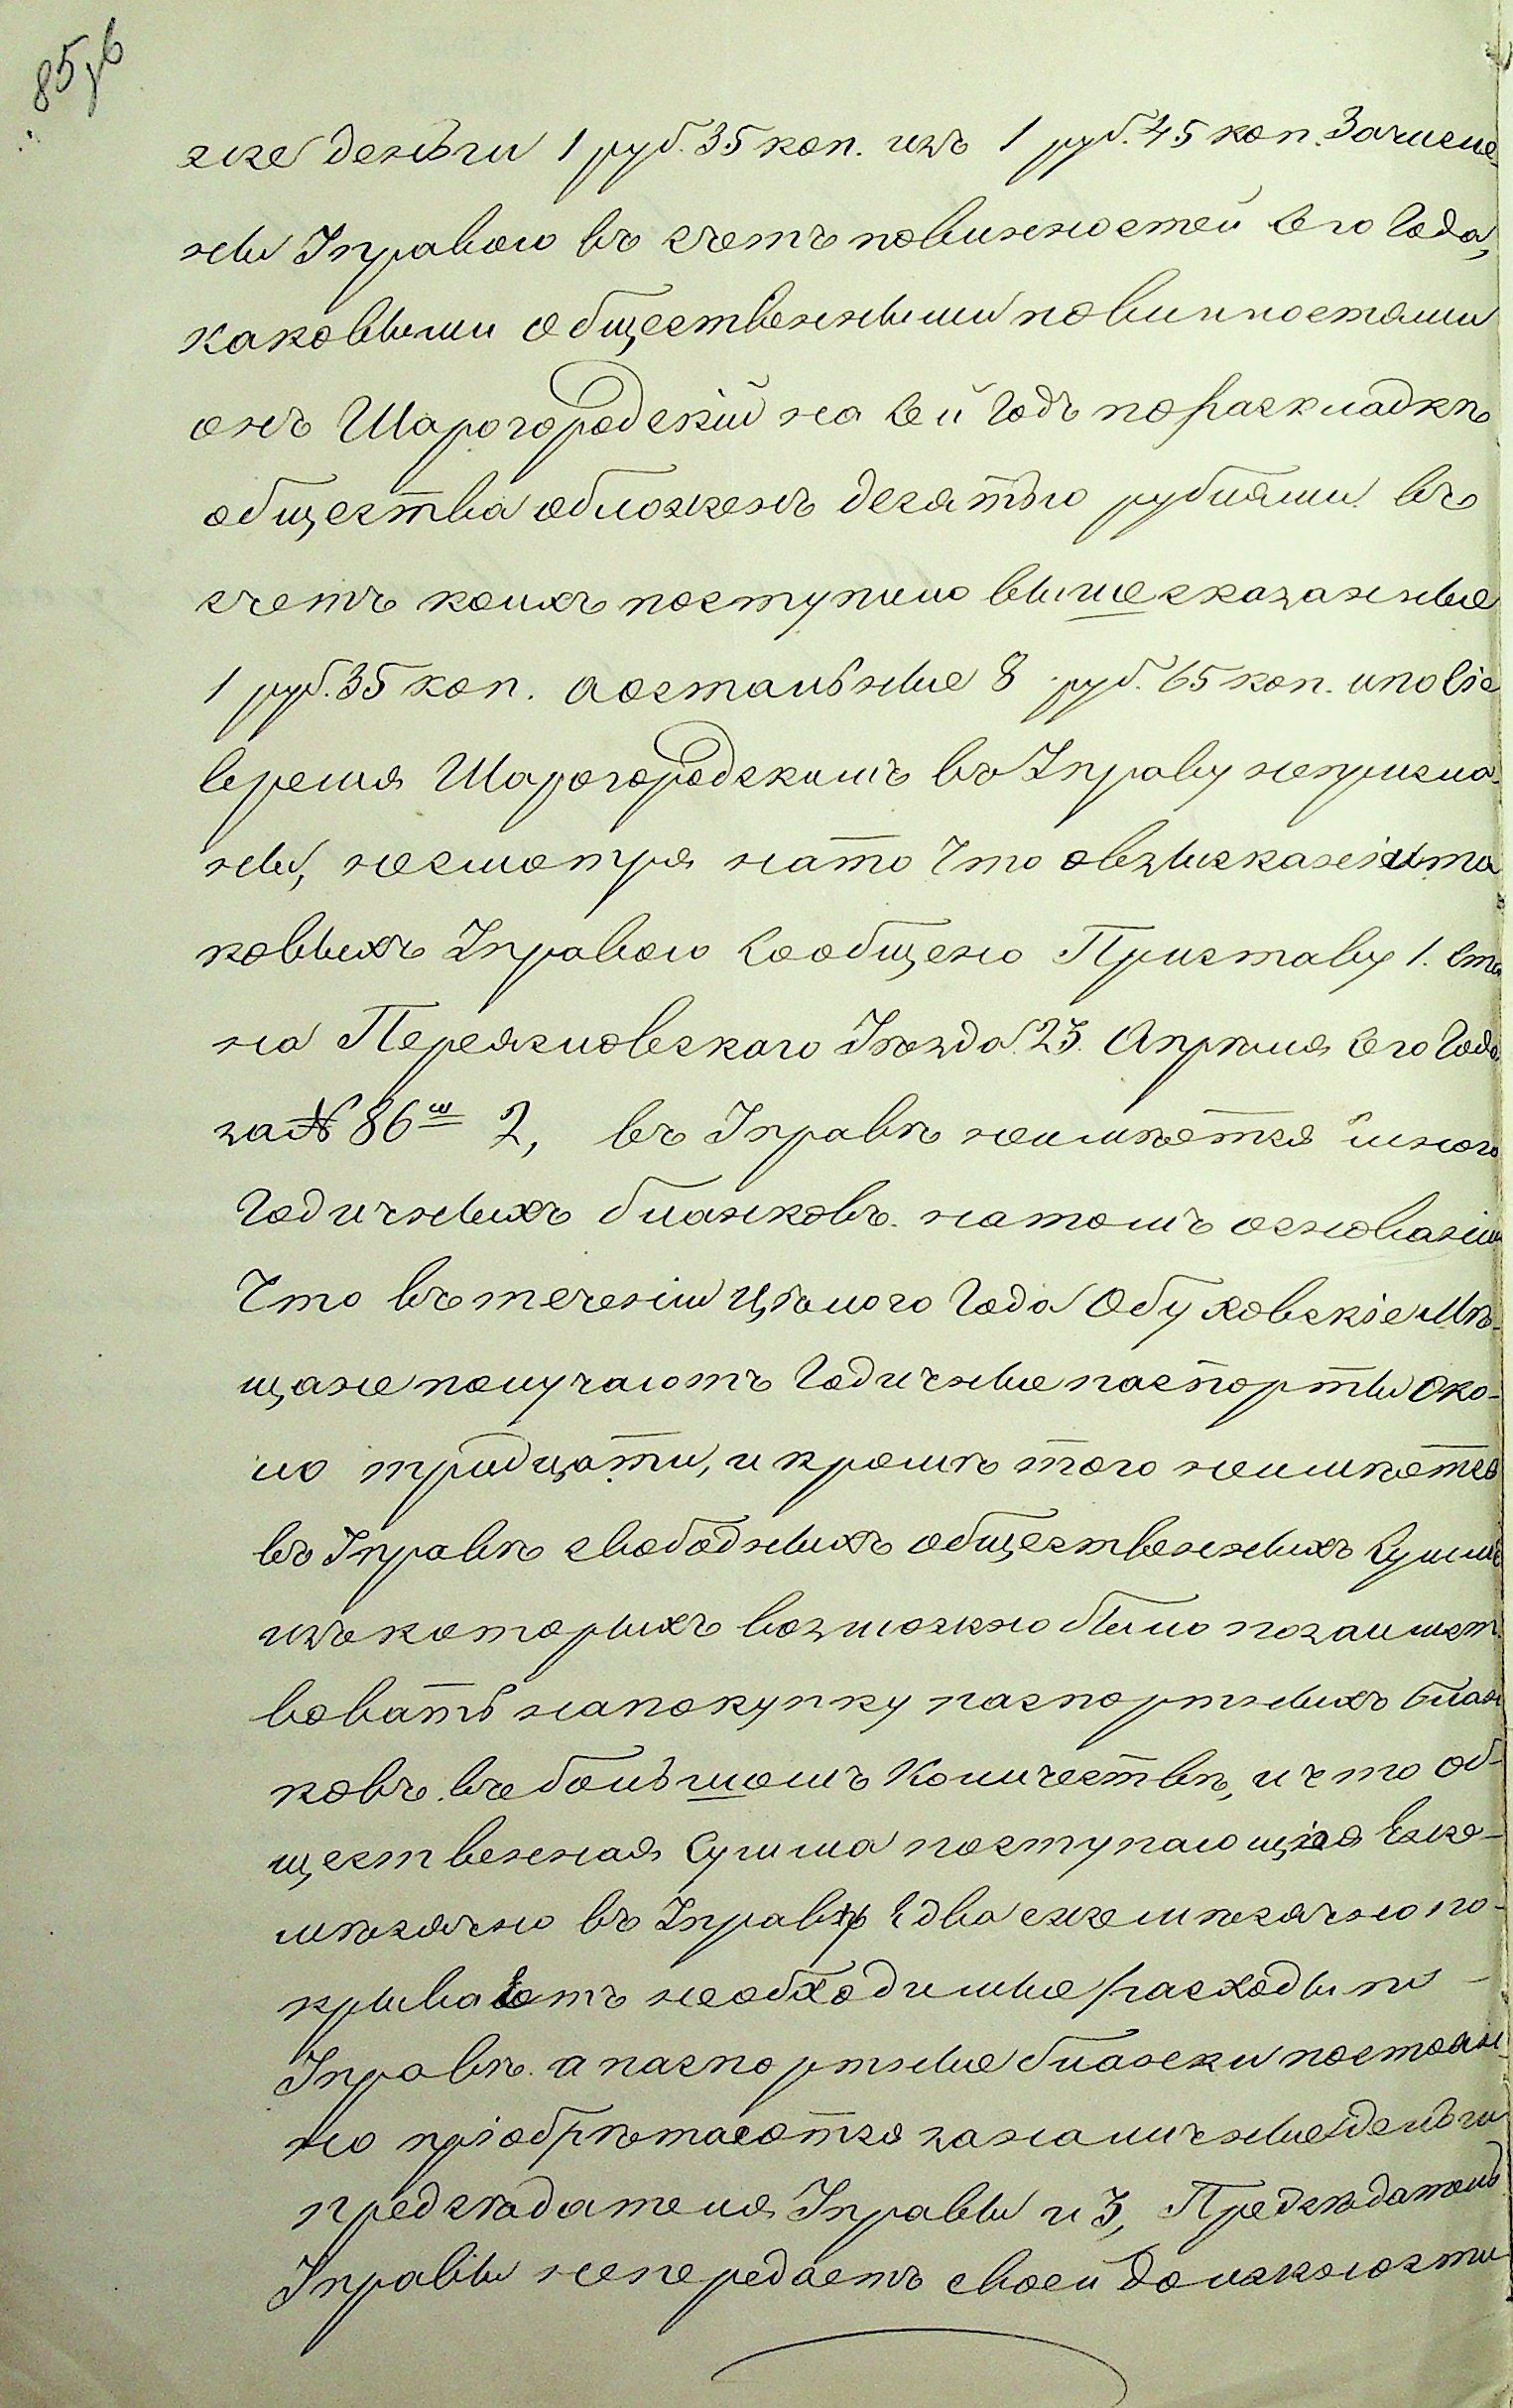 85 зв
же деньги 1 руб. 35 коп. изъ 1 руб. 45 коп. Зачисле-
ны Управою въ счетъ повинностей сего Года,
каковыми общественными повинностями
онъ Шарогородскій на сей Годъ по раскладкѣ
общества обложенъ десятью рублями въ
счетъ коихъ поступило вышесказанные
1 руб. 35 коп. а остальные 8 руб. 65 коп. и по сіе
время Шарогородскимъ въ Управу не присла-
ны, несмотря на то Что о взысканіи та
ковыхъ Управою Сообщено Приставу 1. ста
на Переяславскаго Уѣзда 23. Апрѣля сего Года
за № 86ш 2, въ Управѣ неимѣется много
Годичныхъ бланковъ на томъ основаніи
Что въ теченіи Цѣлого Года Обуховскіе Мѣ-
щане получаютъ Годичные паспорты Око-
ло тридцати, и кромѣ того неимѣется
въ Управѣ свободныхъ общественныхъ Суммъ
изъ которыхъ возможно было позаимст
вовать на покупку паспортныхъ блан
ковъ въ большомъ Количествѣ, и что Об-
щественная Сумма поступающая Еже-
мѣсячно въ Управѣ Едва ежемѣсячно по-
крываетъ необходимые расходы по -
Управѣ а паспортные бланки постоян-
но пріобрѣтаются за наличные деньги
предсѣдателя Управы и 3, Предсѣдатель
Управы не передаетъ своей должности